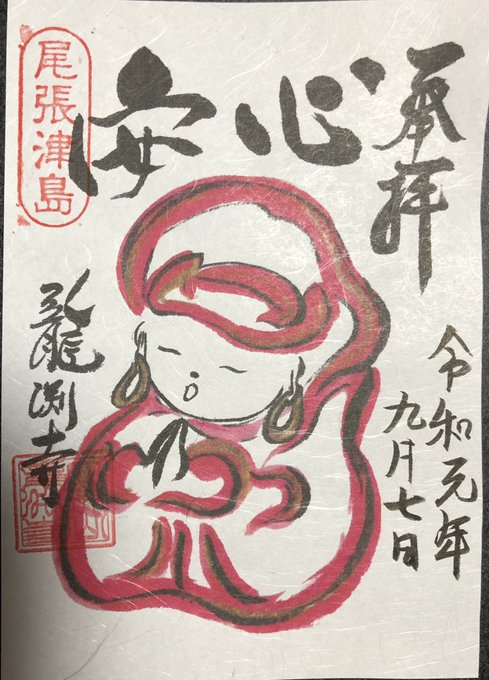 奉拝
令和元年
九月七日
心安
尾張津島
龍渕寺